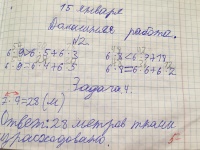 15 января
Домашняя работа.
№2.
6·9=6·5+6·3 6·8<6·9+18
6·9=6·4+6·5 6·8=6·6+6·2
Задача 4.
7·4=28 (м)
Ответ: 28 метров ткани
израсходовано.